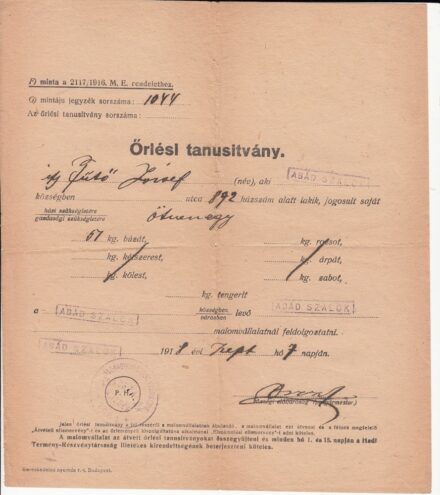 F) minta a 2117/1916. M. E. rendelethez.
G) mintáju jegyzék sorszáma: 1044
Az őrlési tanusitvány sorszáma:
Őrlési tanusitvány.
ifj Fütő József (név), aki ABÁD SZALÓK
községben utca 892 házszám alatt lakik, jogosult saját
házi szükségletére
gazdasági szükségletére
ötvenegy
51 kg. búzát, kg. rozsot,
kg. kétszerest, kg. árpát,
kg. kölest, kg. zabot,
kg. tengerit
a ABÁD SZALÓK községben városban levő ABÁD SZALÓK
malomvállalatnál feldolgoztatni.
ABÁD SZALÓK 1918 évi Szept hó 7 napján.
P. H.
községi előljáróság (polgármester).
Jelen őrlési tanusitvány a
A malomvállalat az átvett őrlési tanusitványokat összegyűjteni és minden hó 1. és 15. napján a Hadi
Termény-Részvénytársaság illetékes kirendeltségének beterjeszteni köteles.
Kereskedelmi nyomda r.-t. Budapest.